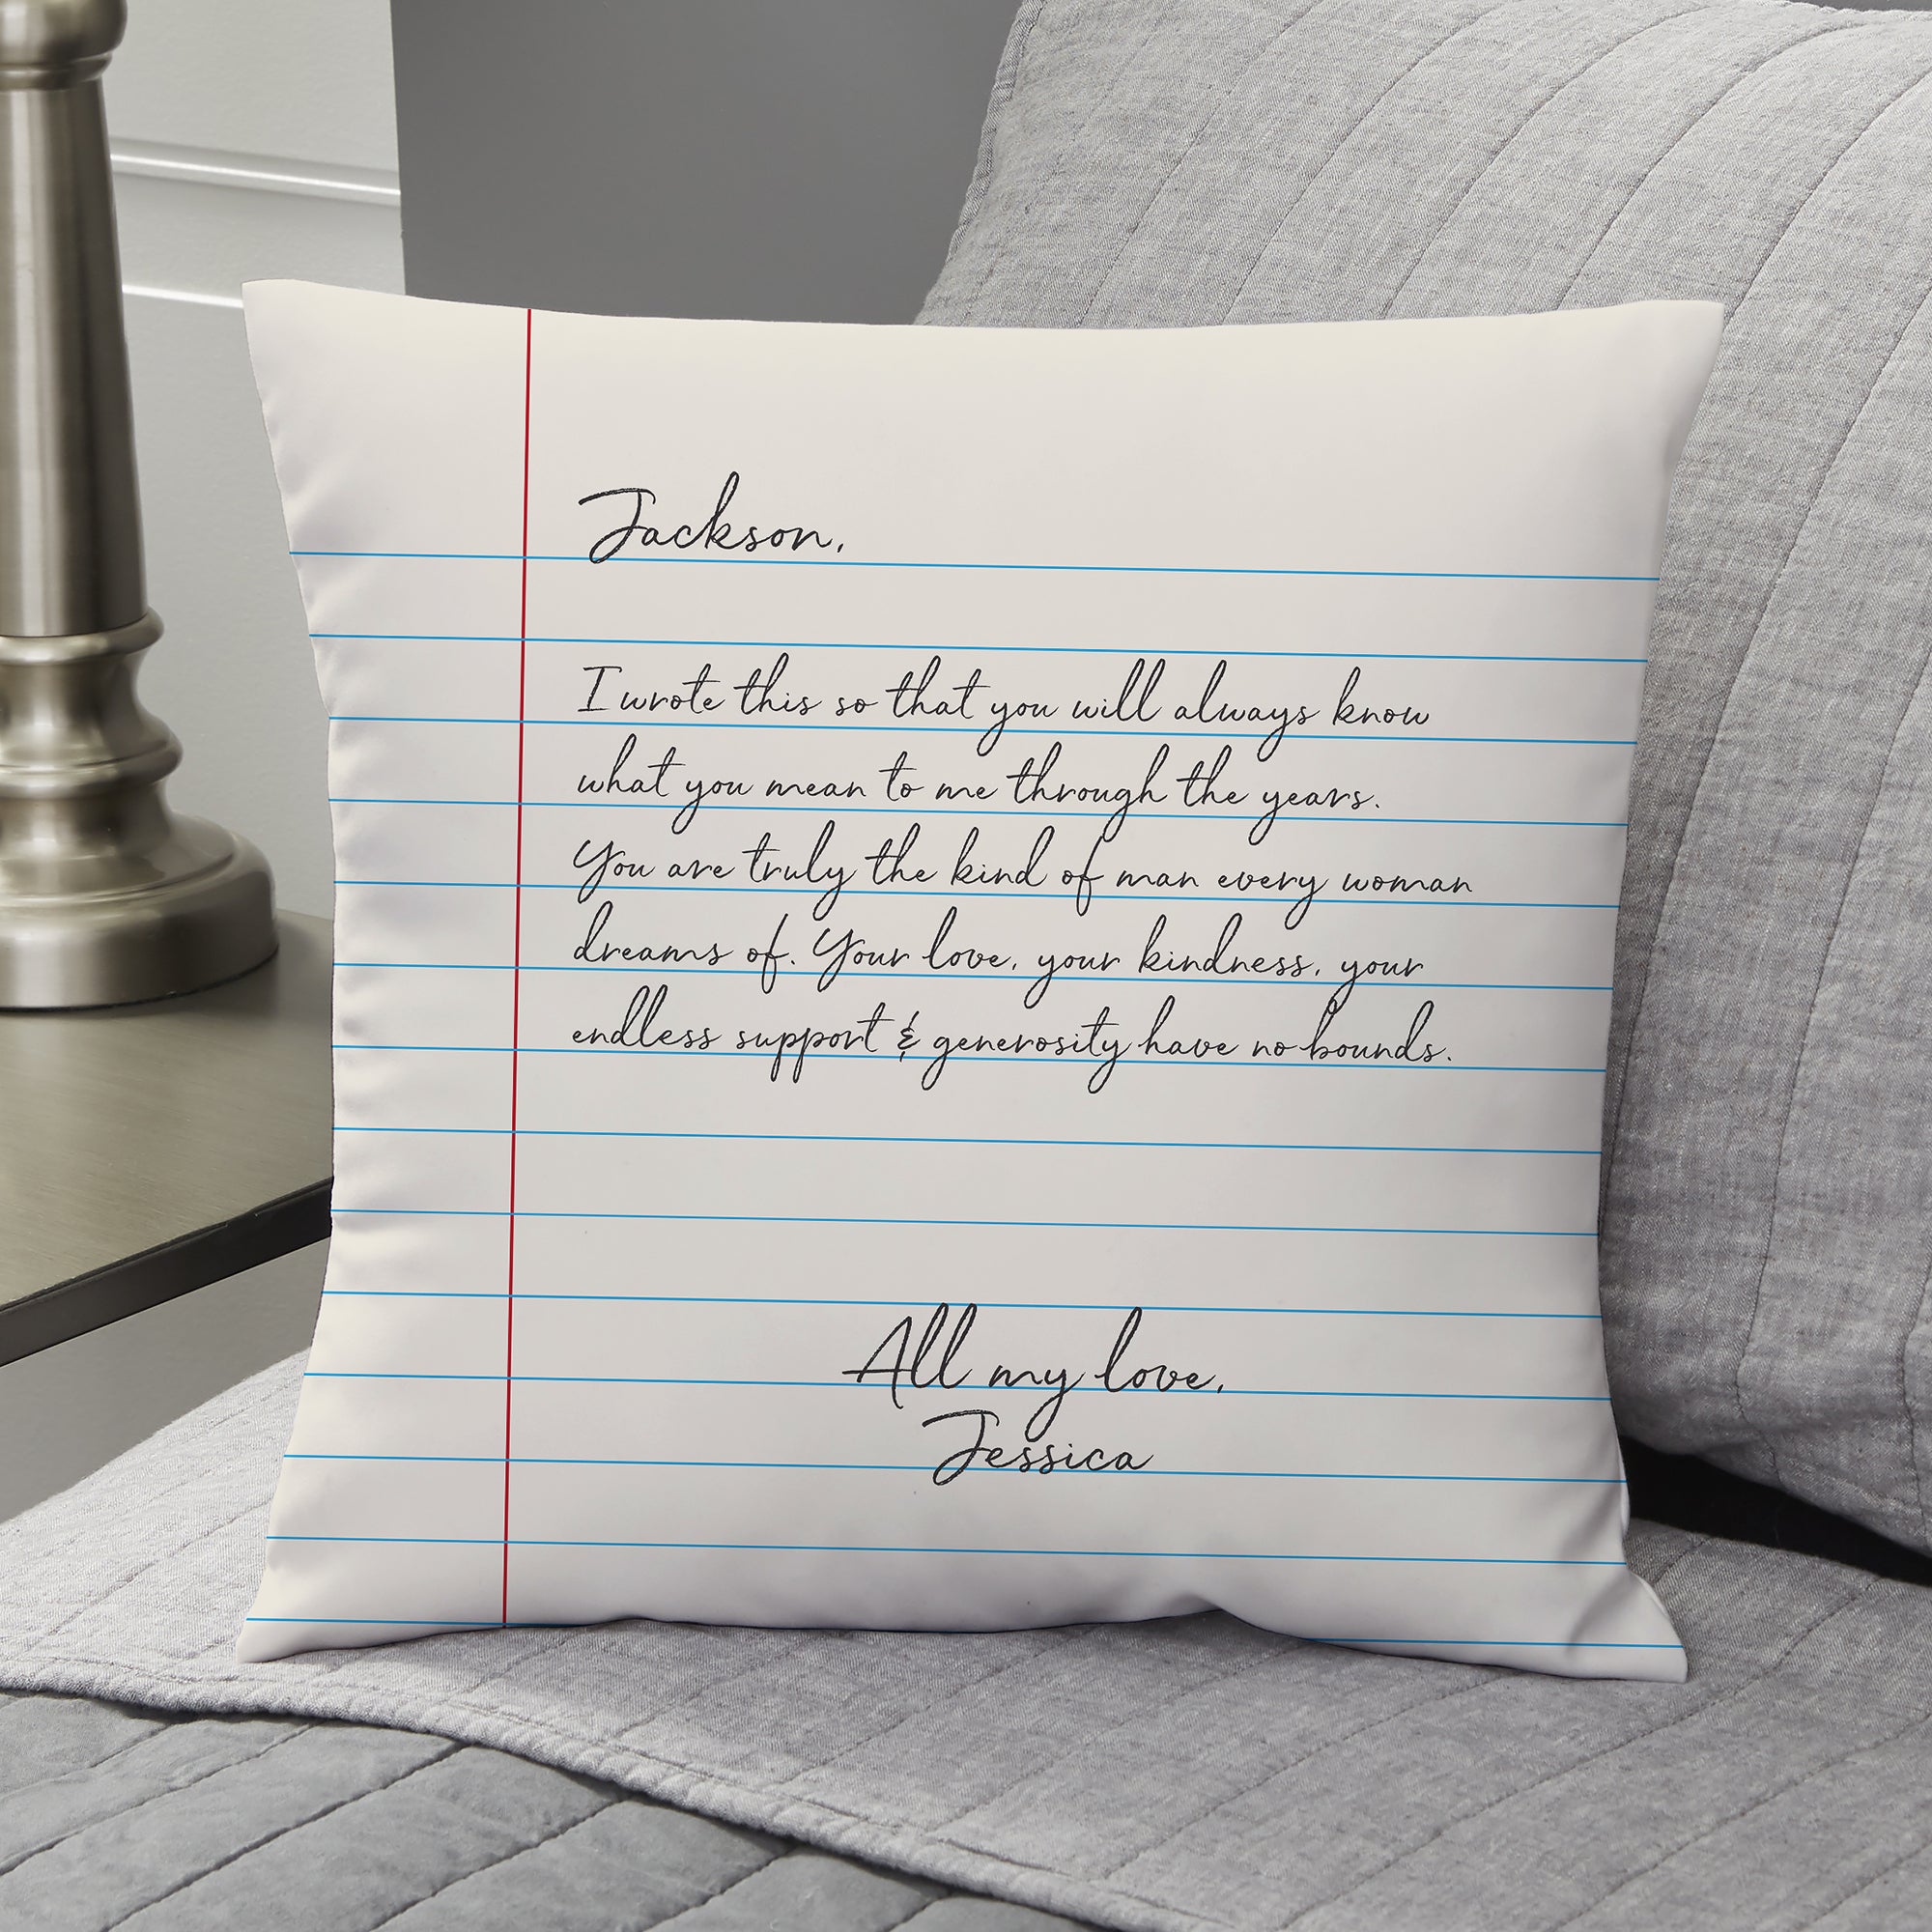 Jackson,
I wrote this so that you will always know
what you mean to me through the years.
You are truly the kind of man every woman
dreams of. Your love, your kindness, your
endless support & generosity have no bounds.
All my love,
Jessica